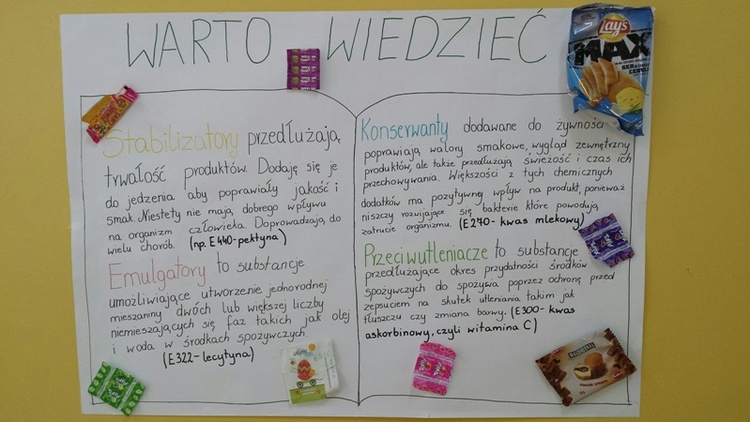 WARTO WIEDZIEĆ
Stabilizatory przedłużają
trwałość produktów. Dodają się je
do jedzenia aby poprawiały jakość i
smak. Niestety nie mają dobrego wpływu
na organizm człowieka. Doprowadzają do
wielu chorób. (np. E440-pektyna)
Emulgatory to substancje
umożliwiające utworzenie jednorodnej
mieszaniny dwóch lub większej liczby
niemieszających się faz takich jak olej
i woda w środkach spożywczych
(E322-lecytyna)
Konserwanty dodawane do żywności
poprawiają walory smakowe, wygląd zewnętrzny
produktów, ale także przedłużają świeżość i czas ich
przechowywania. Większości z tych chemicznych
dodatków ma pozytywny wpływ na produkt, ponieważ
niszczy rozwijające się bakterie które powodują
zatrucie organizmu. (E270-kwas mlekowy)
Przeciwutleniacze to substancje
przedłużające okres przydatności środków
spożywczych do spożywia poprzez ochronę przed
zepsuciem na skutek utleniania takim jak
tłuszczu czy zmiana barwy. (E300-kwas
askorbinowy, czyli witamina C)
Lay's
MAX